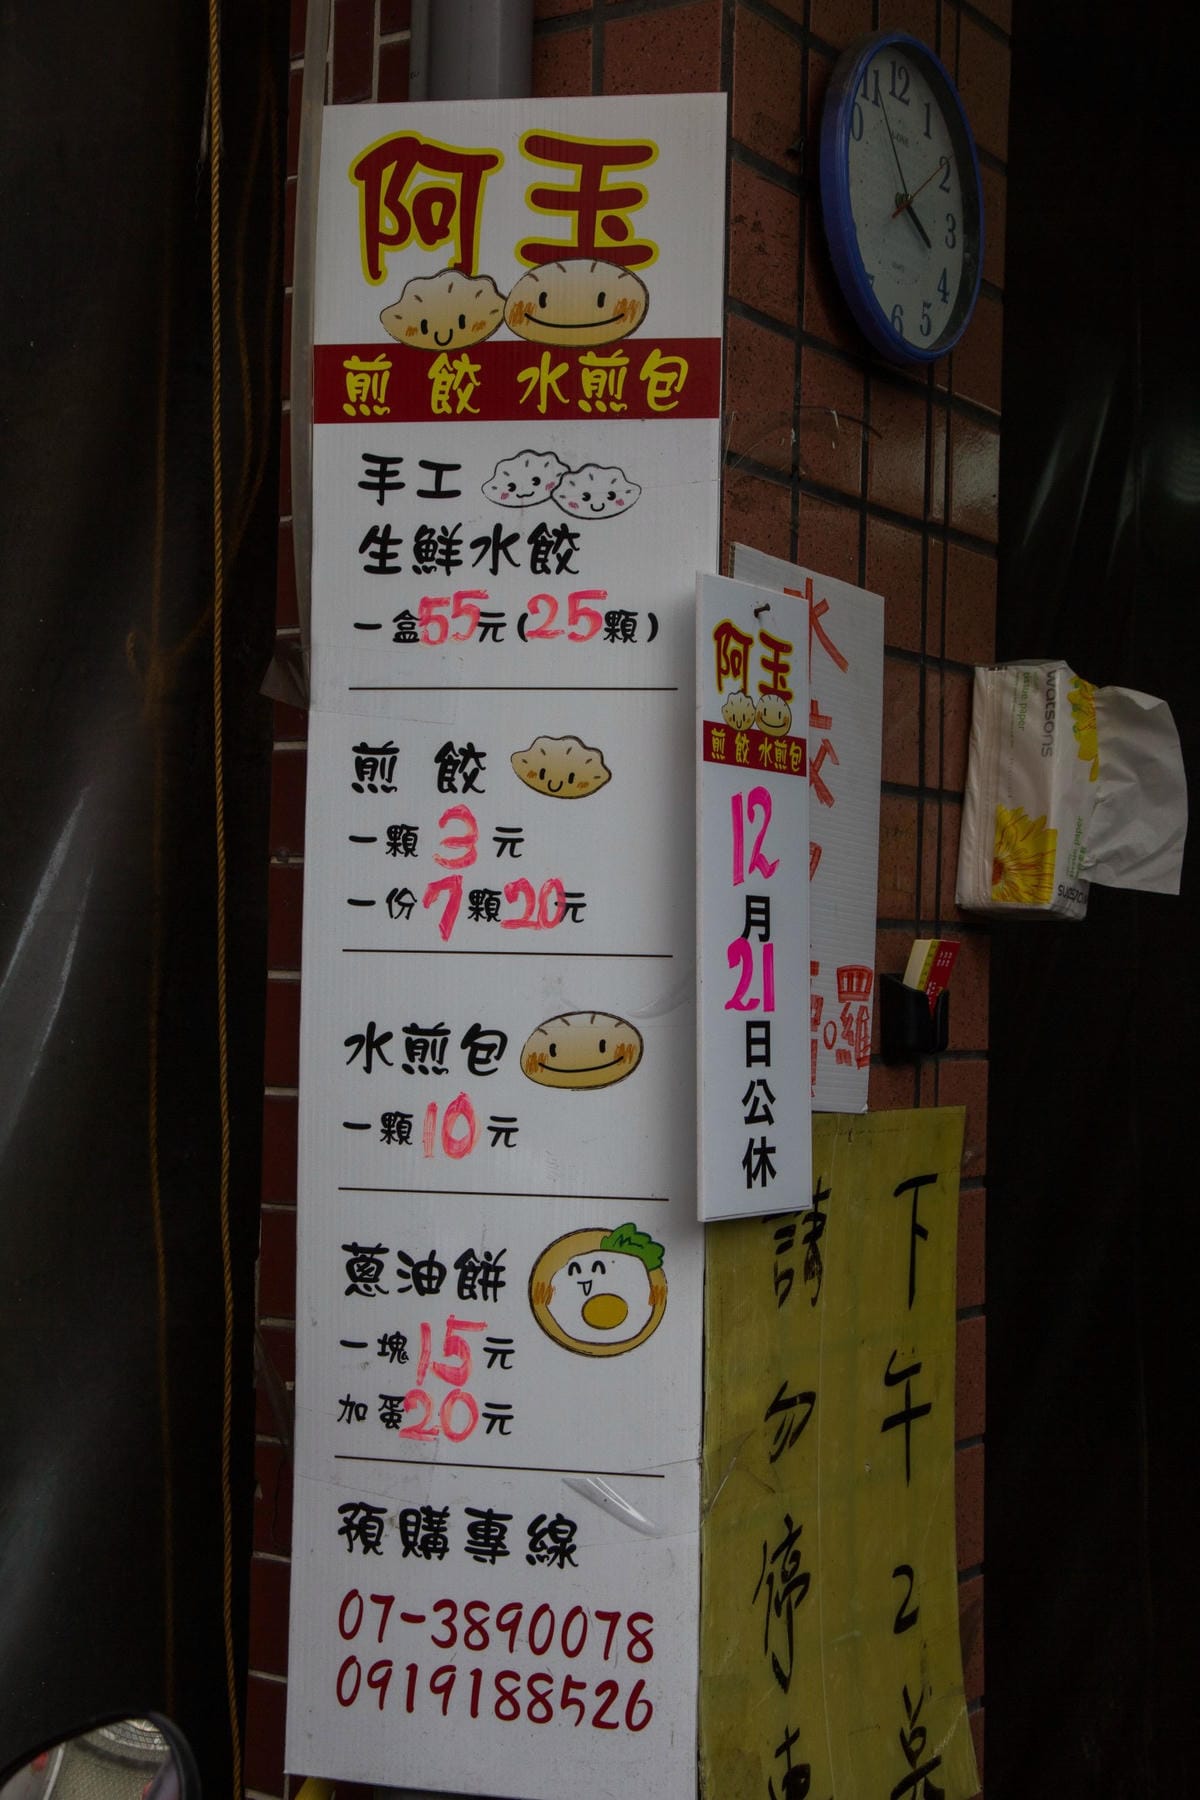 阿玉
煎餃 水煎包
手工
生鮮水餃
一盒55元(25顆)
煎餃
一顆3元
一份7顆20元
水煎包
一顆10元
蔥油餅
一塊15元
加蛋20元
預購專線
07-3890078
0919188526
阿玉
煎餃 水煎包
12
月
21
日
公
休
水
羅
下午2
請勿停車
12
1
2
3
4
5
6
11
watsons
tissue paper
watsons
tissue paper